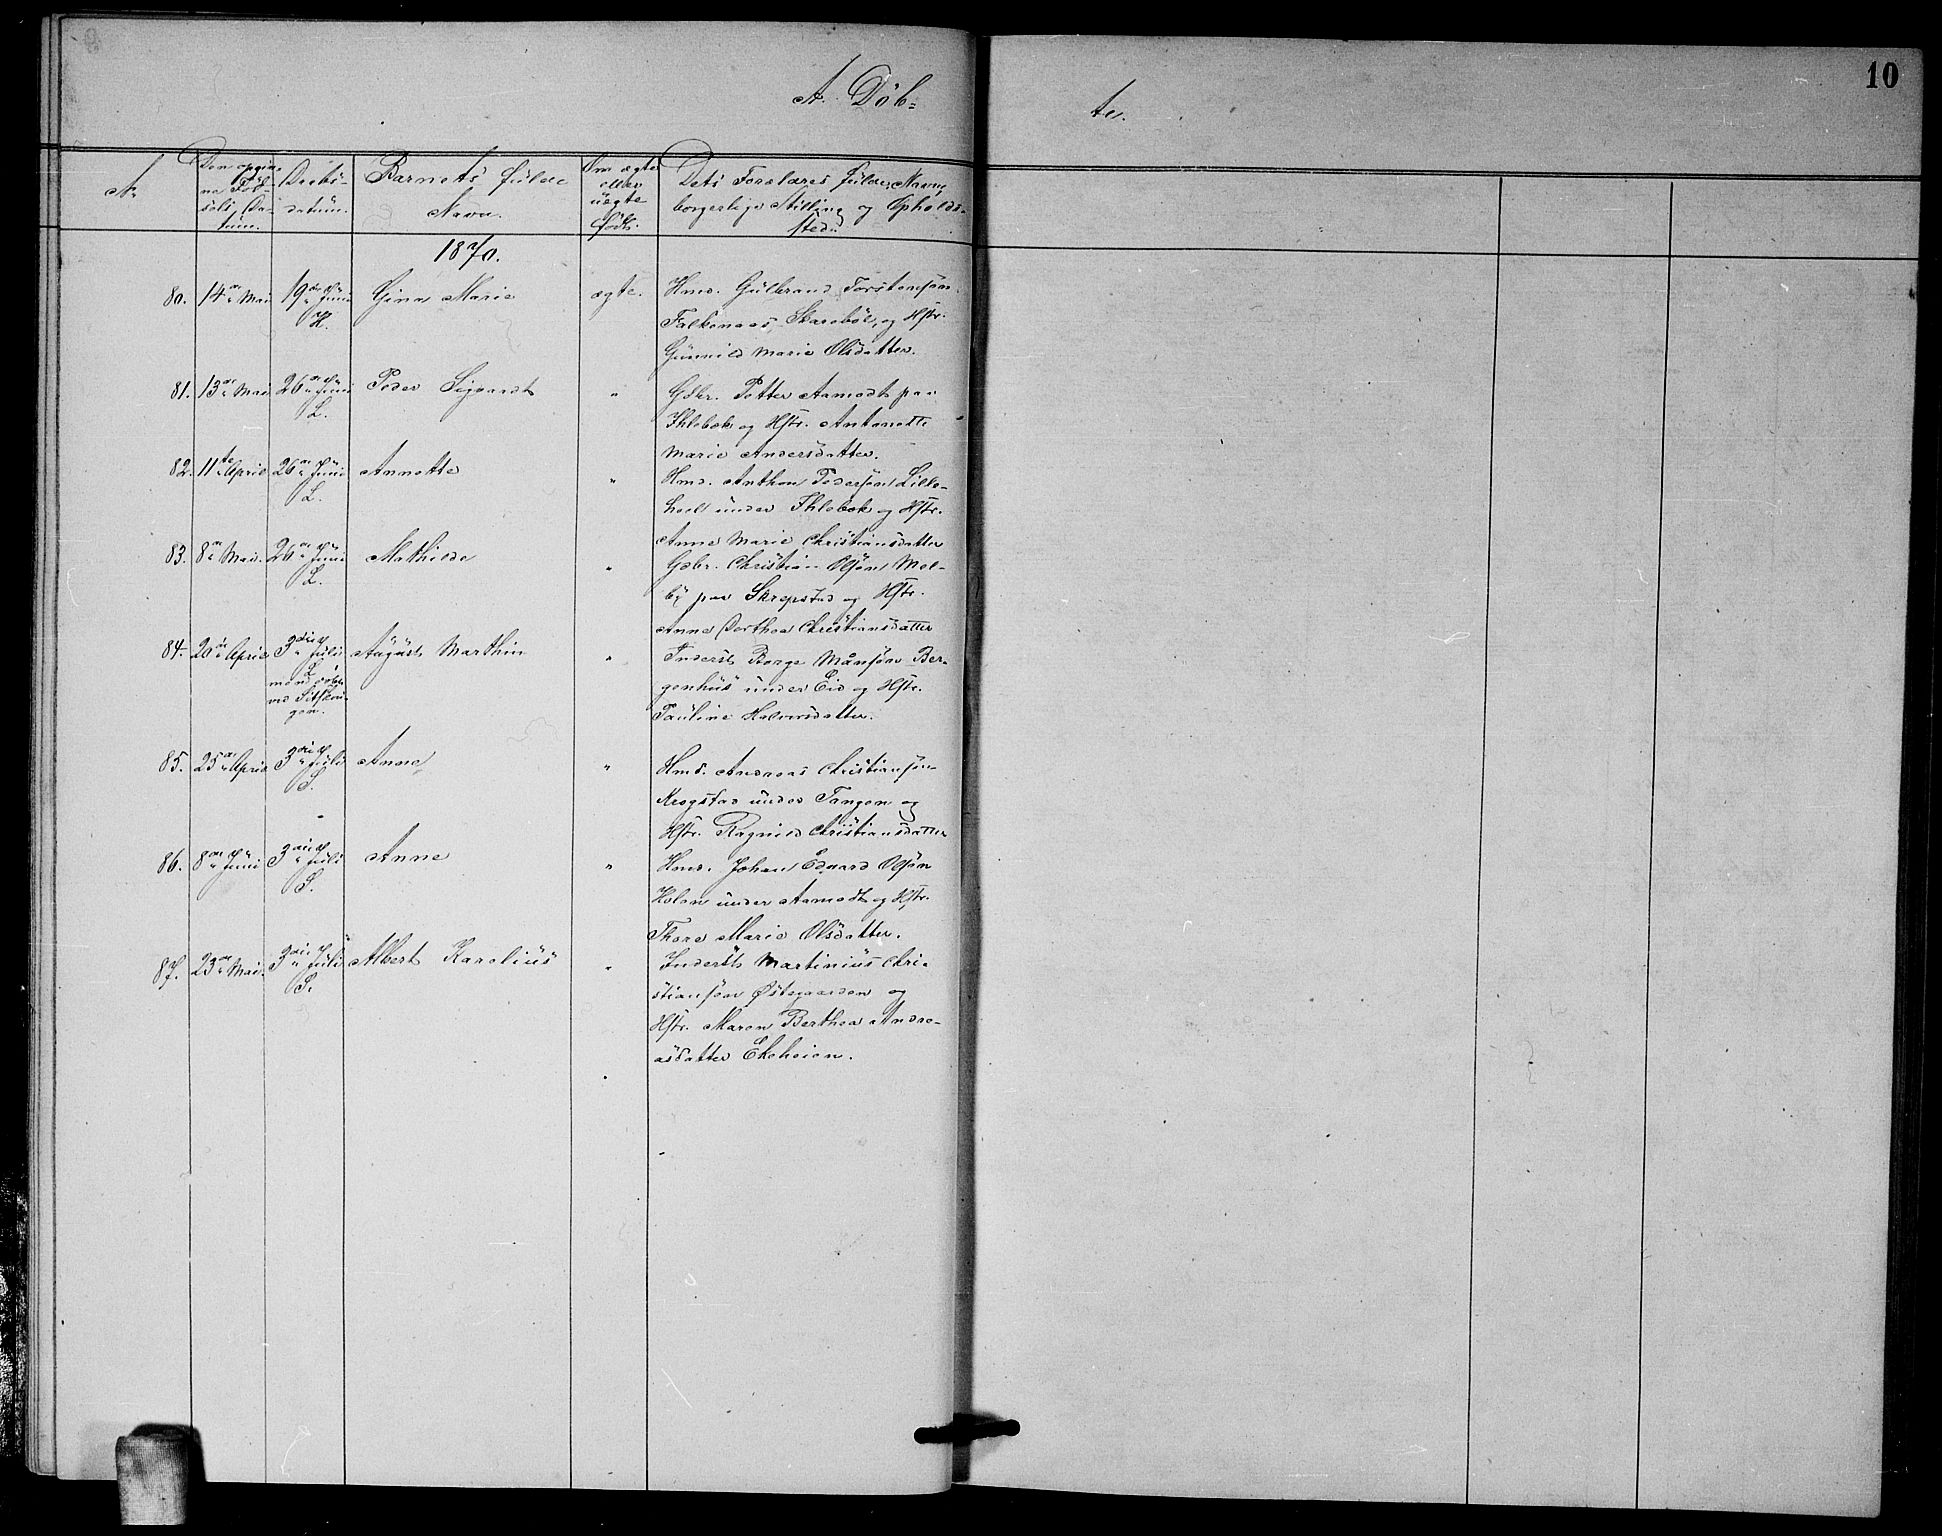 A. Døb-
te.
10
N.
Den opgivne Fødsels Datum.
Daabsdatum.
Barnets fulde Navn.
Om ægte eller uægte født.
Dets Forældres fulde Navn, borgerlige Stilling og Opholdssted.
1870.
80. 14de Mai 19de Juni H. Gina Marie ægte. Hmd. Gulbrand Torstensøn
Falkenaas, Skarebøl, og Hstr.
Gunnild Marie Olsdatter.
81. 13de Mai 26de Juni L. Peder Sigvardt " Gdbr. Petter Aamodt paa
Ihlebæk og Hstr. Antonette
Marie Andersdatter.
82. 11te April 26de Juni L. Annette " Hmd. Anthon Pedersøn Lille-
hoel under Ihlebæk og Hstr.
Anne Marie Christiansdatter
83. 8de Mai. 26de Juni L. Mathilde " Gdbr. Christian Olsøn Mel-
by paa Skrepstad og Hstr.
Anne Dorthea Christiansdatter
84. 20de April 3die Juli L August Marthin " Inderst Borge Månsøn Ber-
genhus under Eid og Hstr.
Pauline Halvorsdatter.
85. 25de April 3die Juli S. Anne " Hmd. Andreas Christiansøn
Krogstad under Tangen og
Hstr. Ragnild Christiansdatter
86. 8de Juni 3die Juli S. Anne " Hmd. Johan Edvard Olsøn
Holen under Aamodt og Hstr.
Thore Marie Olsdatter.
87. 23de Mai. 3die Juli S. Albert Karelius " Inderst Martinius Chri-
stiansøn Østegaarden og
Hstr. Maren Berthea Andre-
asdatter Ekeheien.